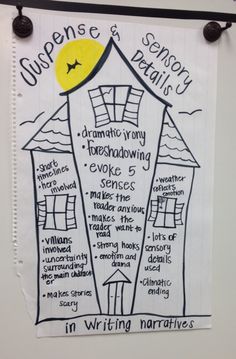 Suspense & Sensory
Details
• dramatic irony
• foreshadowing
• evoke 5
senses
• makes the
reader anxious
• makes the
reader want to
read
• strong hooks
• emotion and
drama
• Short
timelines
• hero
involved
• villians
involved
• uncertainty
surrounding
the main character
• makes stories
scary
• weather
reflects
emotion
• lots of
sensory
details
used
• Climatic
ending
in Writing narratives